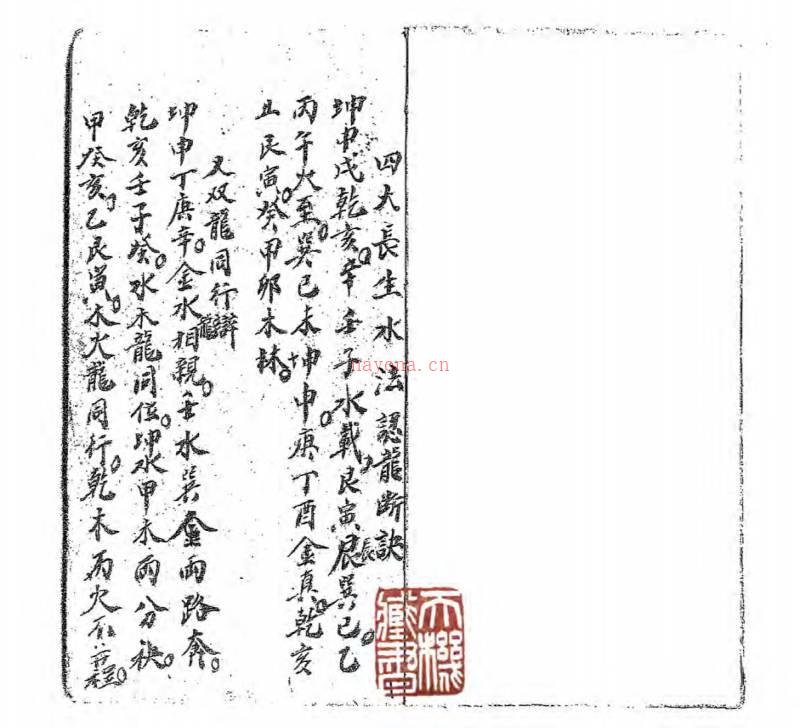 四大長生水法認龍断訣
坤申戌乾亥。辛壬子水載。艮寅辰巽巳。乙
丙午火至。巽巳未坤申。庚丁酉金真。乾亥
丑艮寅。癸甲卯木林。
又双龍同行辯
坤申丁庚辛。金水相親。壬水巽金両路奔。
乾亥壬子癸。水木龍同位。坤水甲木両分袂。
甲癸亥。乙艮寅。木火龍同行。乾木丙火程。
天機
藏書
nayona.cn